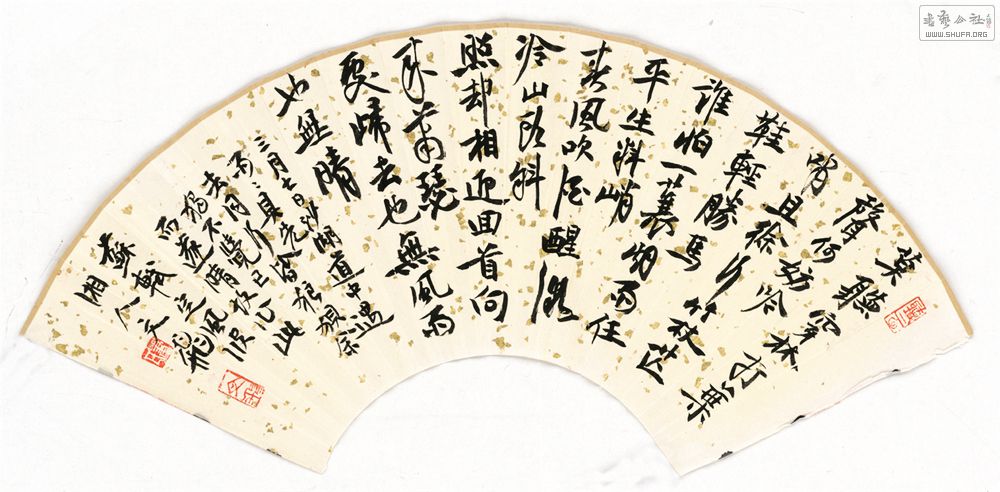 莫聽穿林打葉
聲何妨吟
嘯且徐行竹杖芒
鞋輕勝馬
誰怕一蓑烟雨任
平生料峭
春風吹酒醒微
冷山頭斜
照却相迎回首向
来蕭瑟
處歸去也無風雨
也無晴
三月七日沙湖道中遇
雨〻具先
去同行皆狼狽余
獨不覺已
而遂晴故作此
蘇軾定風波
湘人
WWW.SHUFA.ORG